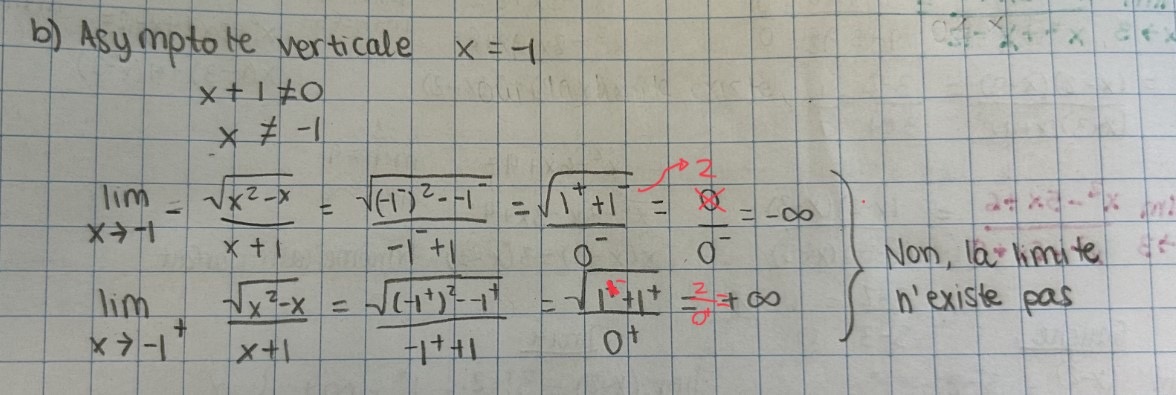 b) Asymptote verticale x = -1
x + 1 ≠ 0
x ≠ -1
lim x→-1⁻ √(x²-x) / (x+1) = √((-1⁻)² - -1⁻) / (-1⁻+1) = √(1⁺+1⁻) / 0⁻ = 2 / 0⁻ = -∞
lim x→-1⁺ √(x²-x) / (x+1) = √((-1⁺)² - -1⁺) / (-1⁺+1) = √(1⁻+1⁺) / 0⁺ = 2/0⁺ = +∞
Non, la limite
n'existe pas